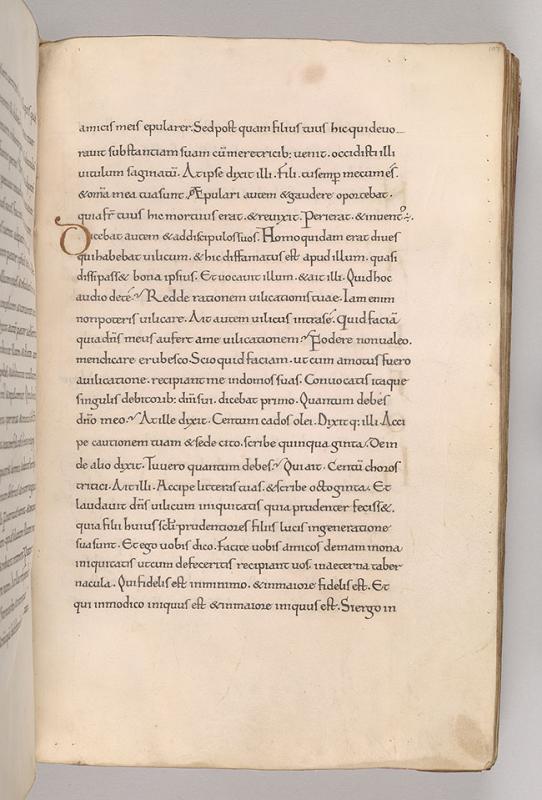 amicis meis epularer. Sed post quam filius tuus hic qui deuo
rauit substantiam suam cū meretricib; uenit. occidisti illi
uitulum saginatū. At ipse dixit illi. Fili. tu semp mecum és.
& om̄a mea tua sunt. Epulari autem & gaudere oportebat.
quia fr̄ tuus hic mortuus erat. & reuixit. Perierat. & inuent⁹ ē.
Dicebat autem & ad discipulos suos. Homo quidam erat diues
qui habebat uilicum. & hic diffamatus est apud illum. quasi
dissipass& bona ipsius. Et uocauit illum. & ait illi. Quid hoc
audio de té. Redde rationem uilicationis tuae. Iam enim
non poteris uilicare. Ait autem uilicus intra sé. Quid faciā
quia dn̄s meus aufert a me uilicationem. Fodere non ualeo.
mendicare erubesco. Scio quid faciam. ut cum amotus fuero
a uilicatione. recipiant me in domos suas. Conuocatis itaque
singulis debitorib; dn̄i sui. dicebat primo. Quantum debés
dn̄o meo. At ille dixit. Centum cados olei. Dixit q; illi. Acci
pe cautionem tuam & sede cito. scribe quinquaginta. Dein
de alio dixit. Tu uero quantum debes. Qui ait. Centū choros
tritici. Ait illi. Accipe litteras tuas. & scribe octoginta. Et
laudauit dn̄s uilicum iniquitatis quia prudenter feciss&.
quia filii huius scl̄i prudentiores filiis lucis in generatione
sua sunt. Et ego uobis dico. Facite uobis amicos de mamona
iniquitatis ut cum defeceritis recipiant uos. in aeterna taber
nacula. Qui fidelis est in minimo. & in maiore fidelis est. Et
qui in modico iniquus est & in maiore iniquus est. Si ergo in